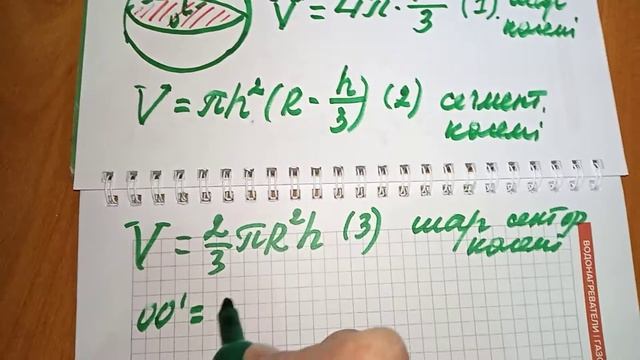 V = 4π · /3 (1). шар
көлемі
V = πh²(R - h/3) (2) сегмент.
көлемі
V = 2/3 πR²h (3) шар сектор
көлемі
OO' =
ВОДОНАГРЕВАТЕЛИ | ГАЗО